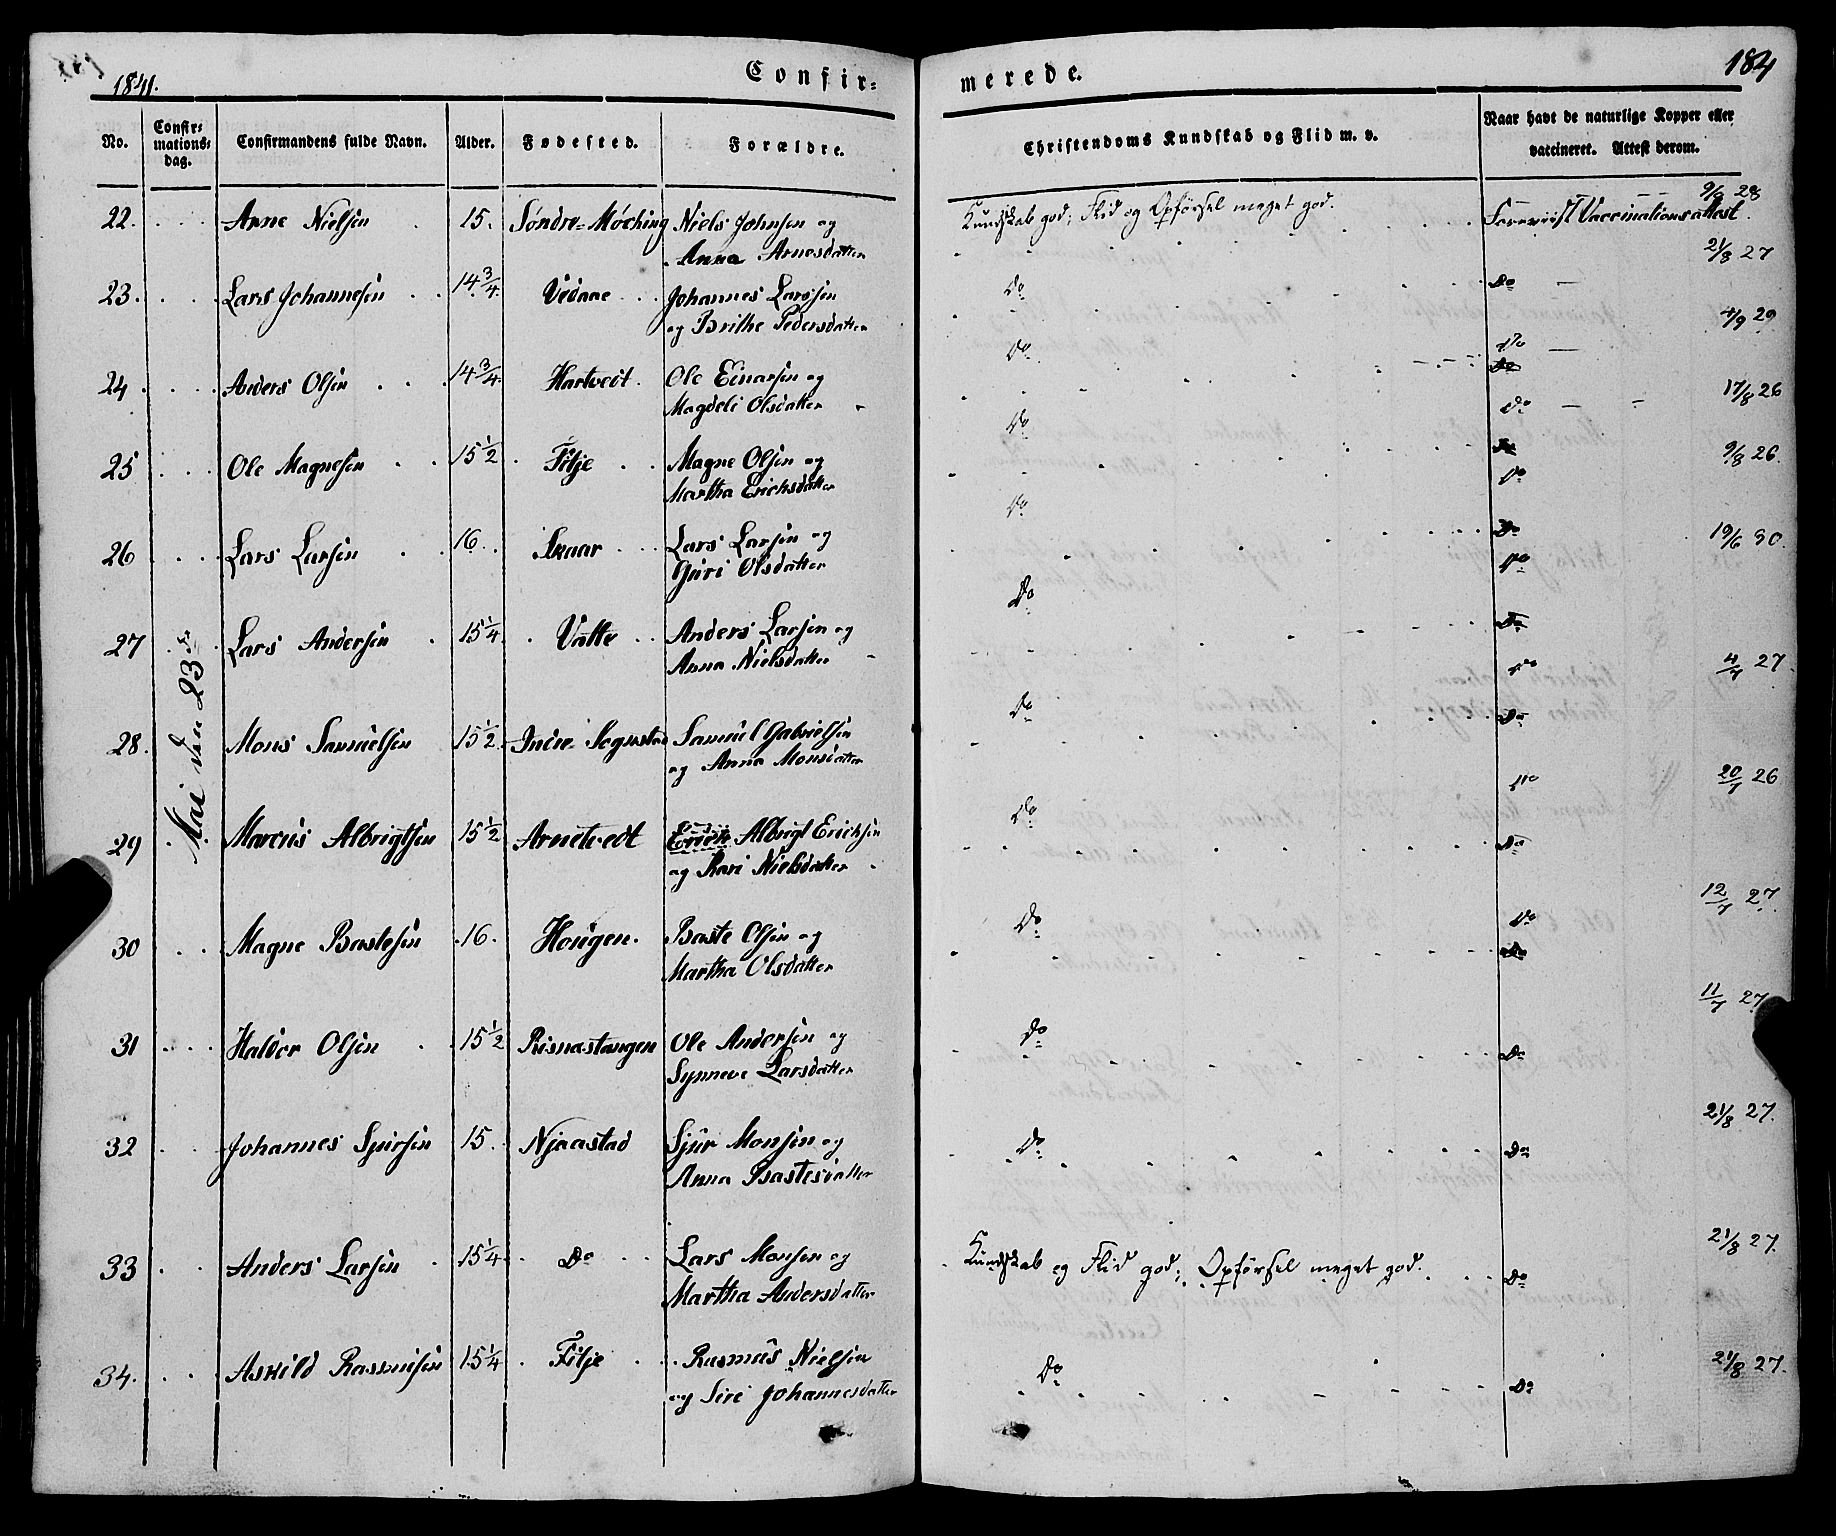 1841.
Confir=
merede.
184
No.
Confir=
mations=
dag.
Confirmandens fulde Navn.
Alder.
Fødested.
Forældre.
Christendoms Kundskab og Flid m. v.
Naar havt de naturlige Kopper eller
vaccineret. Attest derom.
Mai den 23de
22. Arne Nielsen 15. Søndre=Møching Niels Johnsen og
Anna Arnesdatter
Kundskab god; Flid og Opførsel meget god. Foreviist Vaccinationsattest. 9/9 28
23. Lars Johannesen 14 3/4. Vedaae Johannes Larsen
og Brithe Pedersdatter
Do Do 21/8 27
24. Anders Olsen 14 3/4. Hartveit. Ole Einarsen og
Magdeli Olsdatter
Do Do 4/9 29
25 Ole Magnesen 15 1/2 Fitje Magne Olsen og
Martha Ericksdatter
Do Do 17/8 26
26 Lars Larsen 16. Skaar Lars Larsen og
Guri Olsdatter
Do Do 9/8 26.
27 Lars Andersen 15 1/4. Vatte Anders Larsen og
Anna Nielsdatter
Do Do 19/6 30.
28. Mons Samuelsen 15 1/2. Indre Sognstad Samuel Gabrielsen
og Anna Monsdatter
Do Do 4/7 27
29 Marcus Albrigtsen 15 1/2 Arnetvedt Erick Albrigt Ericksen
og Kari Nielsdatter
Do Do 20/7 26
30 Magne Bastesen 16. Hougen. Baste Olsen og
Martha Olsdatter
Do Do 12/7 27.
31 Haldor Olsen 15 1/2 Risnastangen Ole Andersen og
Synneve Larsdatter
Do Do 11/7 27
32 Johannes Sjursen 15. Njaastad Sjur Monsen og
Anna Bastesdatter
Do Do 21/8 27.
33 Anders Larsen 15 1/4. Do Lars Monsen og
Martha Andersdatter
Kundskab og Flid god; Opførsel meget god. Do 21/8 27.
34. Askild Rasmusen 15 1/4 Fitje Rasmus Nielsen
og Siri Johannesdatter
Do Do 21/8 27.